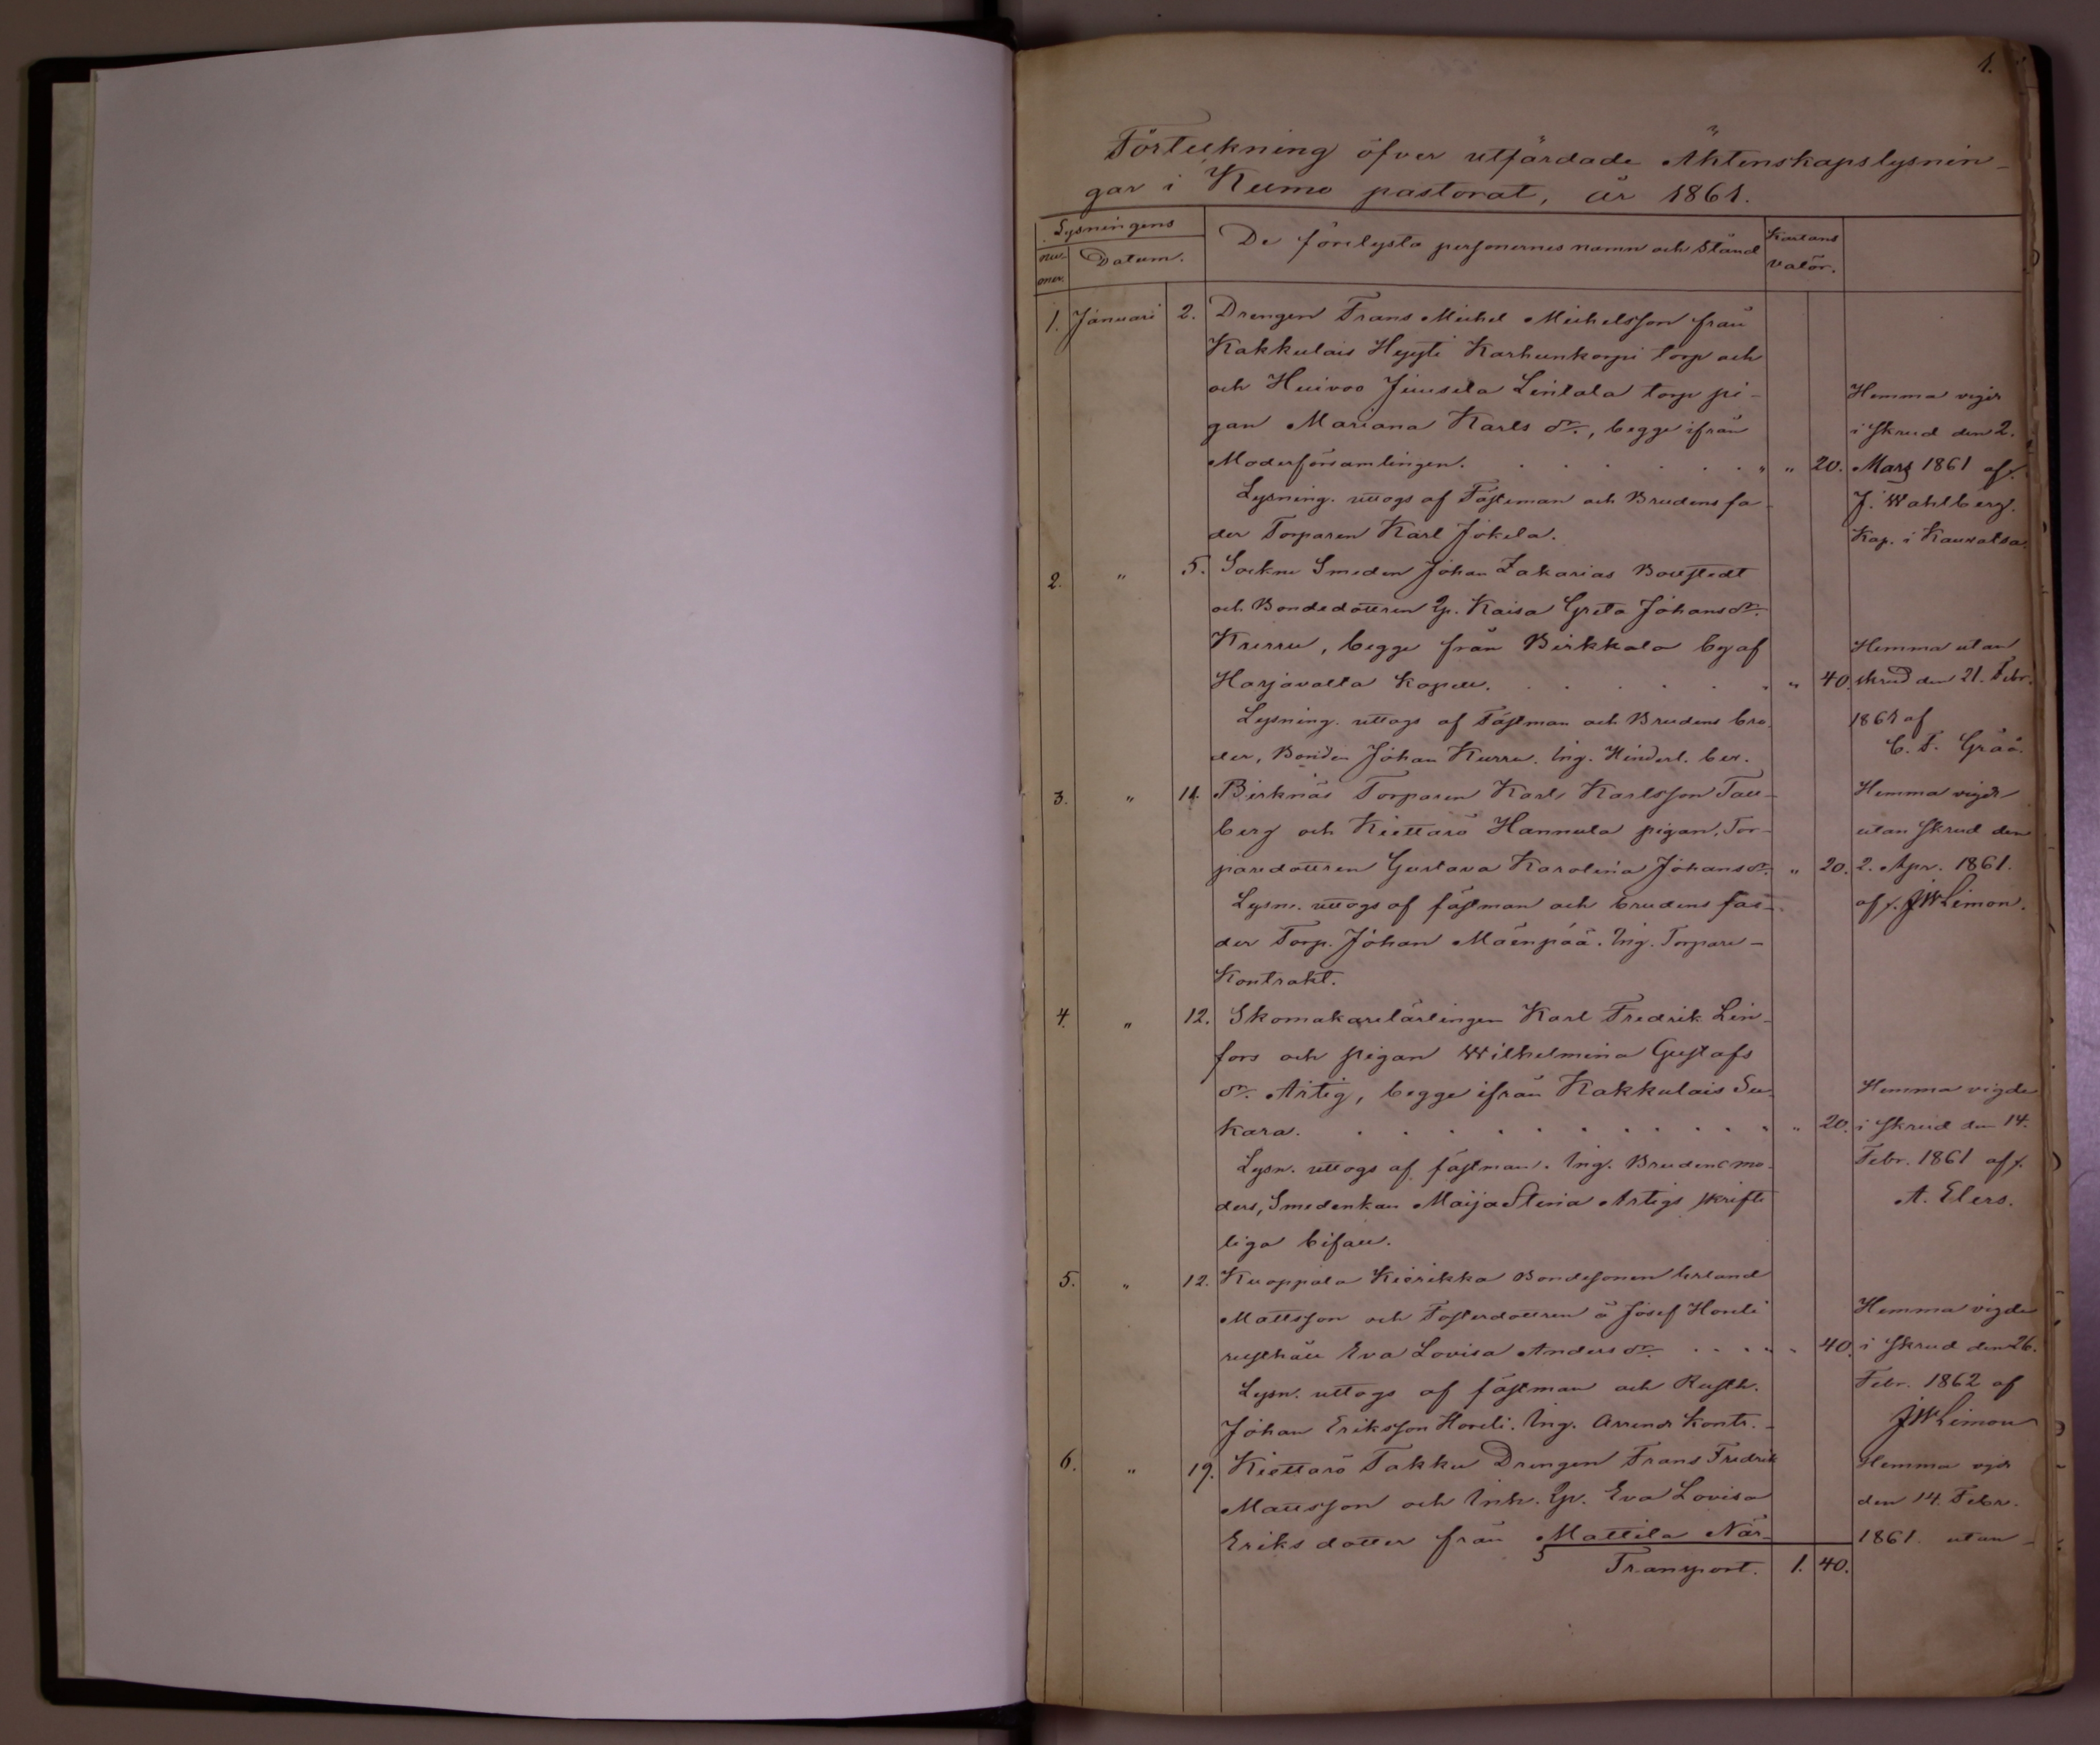 1.
Förteckning öfver utfärdade Äktenskapslysnin-
gar i Kumo pastorat, år 1861.
Lysningens
Nu-
mer.
Datum.
De förelysta personernes namn och stånd
Kartans
valör.
1. Januari 2. Drengen Frans Michel Michelsson från
Kakkulais Hyyti Karhunkorpi torp och
och Huivoo Juusela Lintala torp pi-
gan Mariana Karls dr., begge ifrån
Moderförsamlingen. " " 20.
Lysning. uttogs af Fästeman och Brudens fa-
der Torparen Karl Jokela.
Hemma vigde
i skrud den 2.
Mars 1861 af
J. Wahlberg.
Kap. i Kauvatsa.
2. " 5. Sockne Smeden Johan Zakarias Boustedt
och Bondedottren Qp. Kaisa Greta Johansdr.
Kurru, begge från Pirkkala by af
Harjavalta Kapell. " " 40.
Lysning. uttogs af Fästman och Brudens bro-
der, Bonden Johan Kurru. Ing. Hinderl. bev.
Hemma utan
skrud den 21. Febr.
1861 af
C. F. Gråå.
3. " 11. Birknäs Torparen Karl Karlsson Tall-
berg och Kiettarö Hannula pigan, Tor-
paredottren Gustava Karolina Johansdr. " 20.
Lysn. uttogs af fästman och brudens fa-
der Torp. Johan Mäenpää. Ing. Torpare-
Kontrakt.
Hemma vigde
utan skrud den
2. Apr. 1861.
af JWLimon.
4. " 12. Skomakarelärlingen Karl Fredrik Lin-
fors och pigan Wilhelmina Gustafs
dr. Artig, begge ifrån Kakkulais Su-
kara. " " 20.
Lysn. uttogs af fästman. Ing. Brudens mo-
ders, Smedenkan Maija Stina Artigs skrift-
liga bifall.
Hemma vigde
i skrud den 14.
Febr. 1861 af
A. Elers.
5. " 12. Kuoppala Kiörikka Bondesonen Erland
Mattsson och Fosterdottren å Josef Horeli
rusthåll Eva Lovisa Andersdr. " " 40.
Lysn. uttogs af fästman och Rusth.
Johan Eriksson Horeli. Ing. Arrende Kontr.
Hemma vigde
i skrud den 26.
Febr. 1862 af
JWLimon
6. " 19. Kiettarö Takku Drengen Frans Fredrik
Mattsson och Inh. Qp. Eva Lovisa
Eriks dotter från Mattila När-
Hemma vigde
den 14. Febr.
1861 utan
Transport. 1. 40.